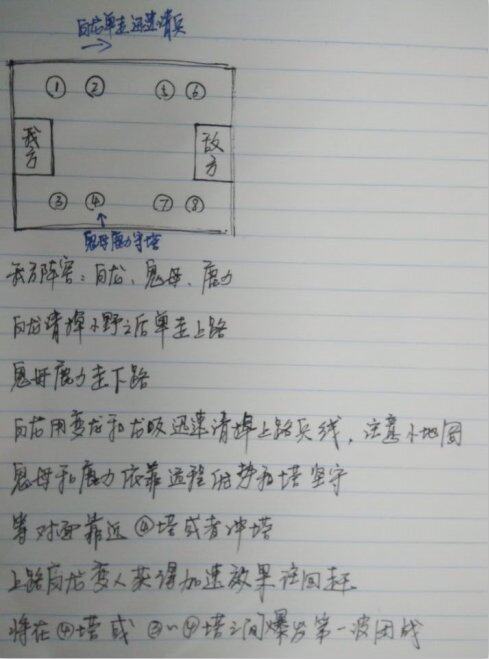 白龙单走迅速清兵
① ② ⑤ ⑥
我方 敌方
③ ④ ⑦ ⑧
鬼母鹿力守塔
我方阵容:白龙、鬼母、鹿力
白龙清掉小野之后单走上路
鬼母鹿力走下路
白龙用变龙和龙吸迅速清掉上路兵线,注意小地图
鬼母和鹿力依靠远程优势和塔坚守
等对面靠近④塔或者冲塔
上路白龙变人获得加速效果往回赶
将在④塔或③~④塔之间爆发第一波团战